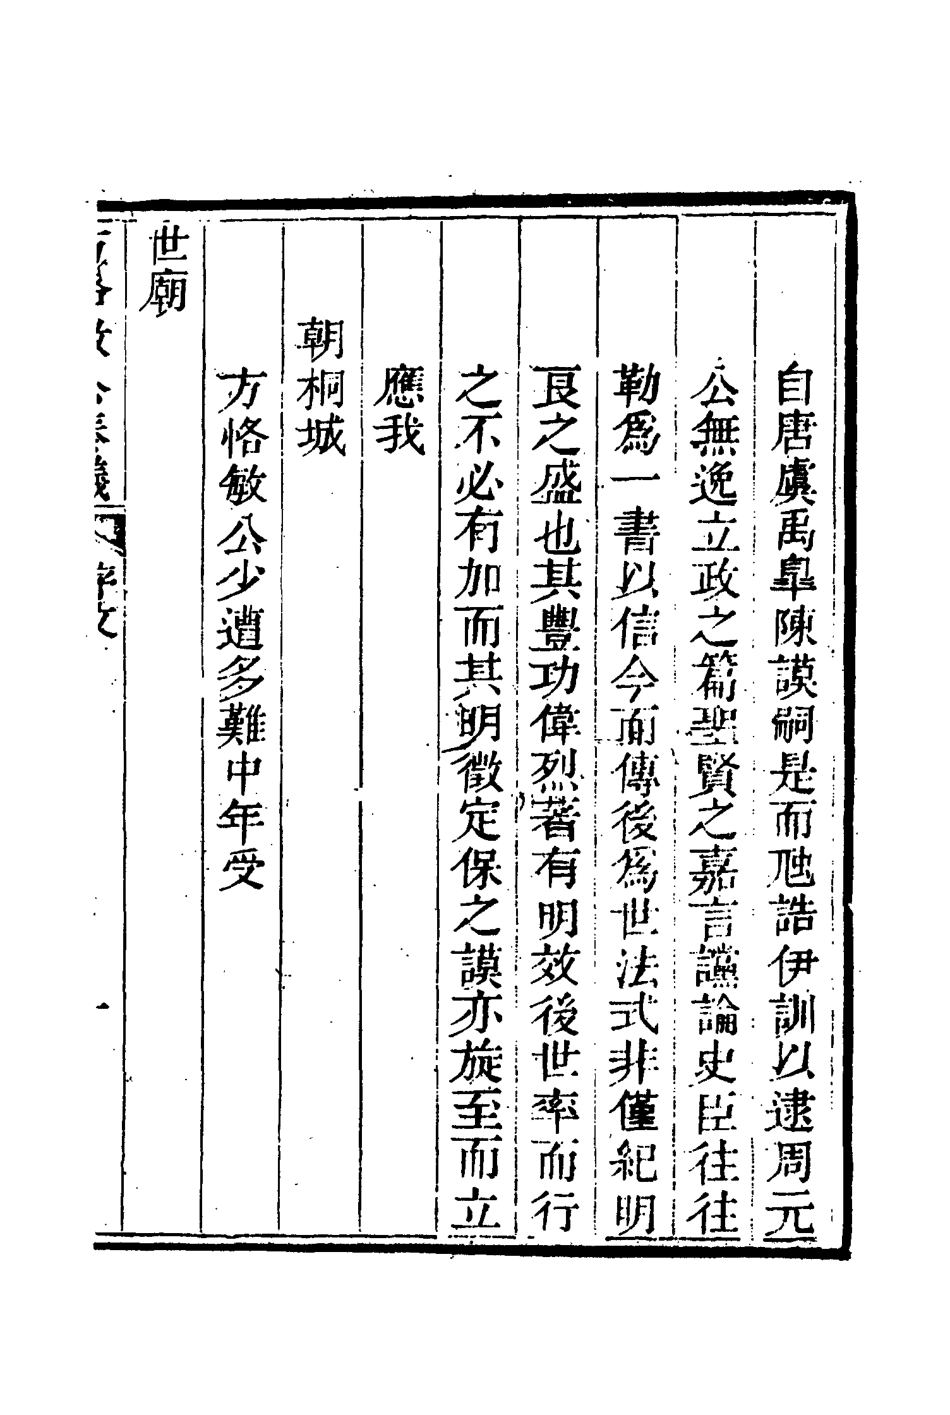 自唐虞禹臯陳謨嗣是而虺誥伊訓以逮周元
公無逸立政之篇聖賢之嘉言讜論史臣往往
勒爲一書以信今而傳後爲世法式非僅紀明
良之盛也其豐功偉烈著有明效後世率而行
之不必有加而其明徵定保之謨亦旋至而立
應我
朝桐城
方恪敏公少遭多難中年受
世廟
方恪敏公奏議 序文 一